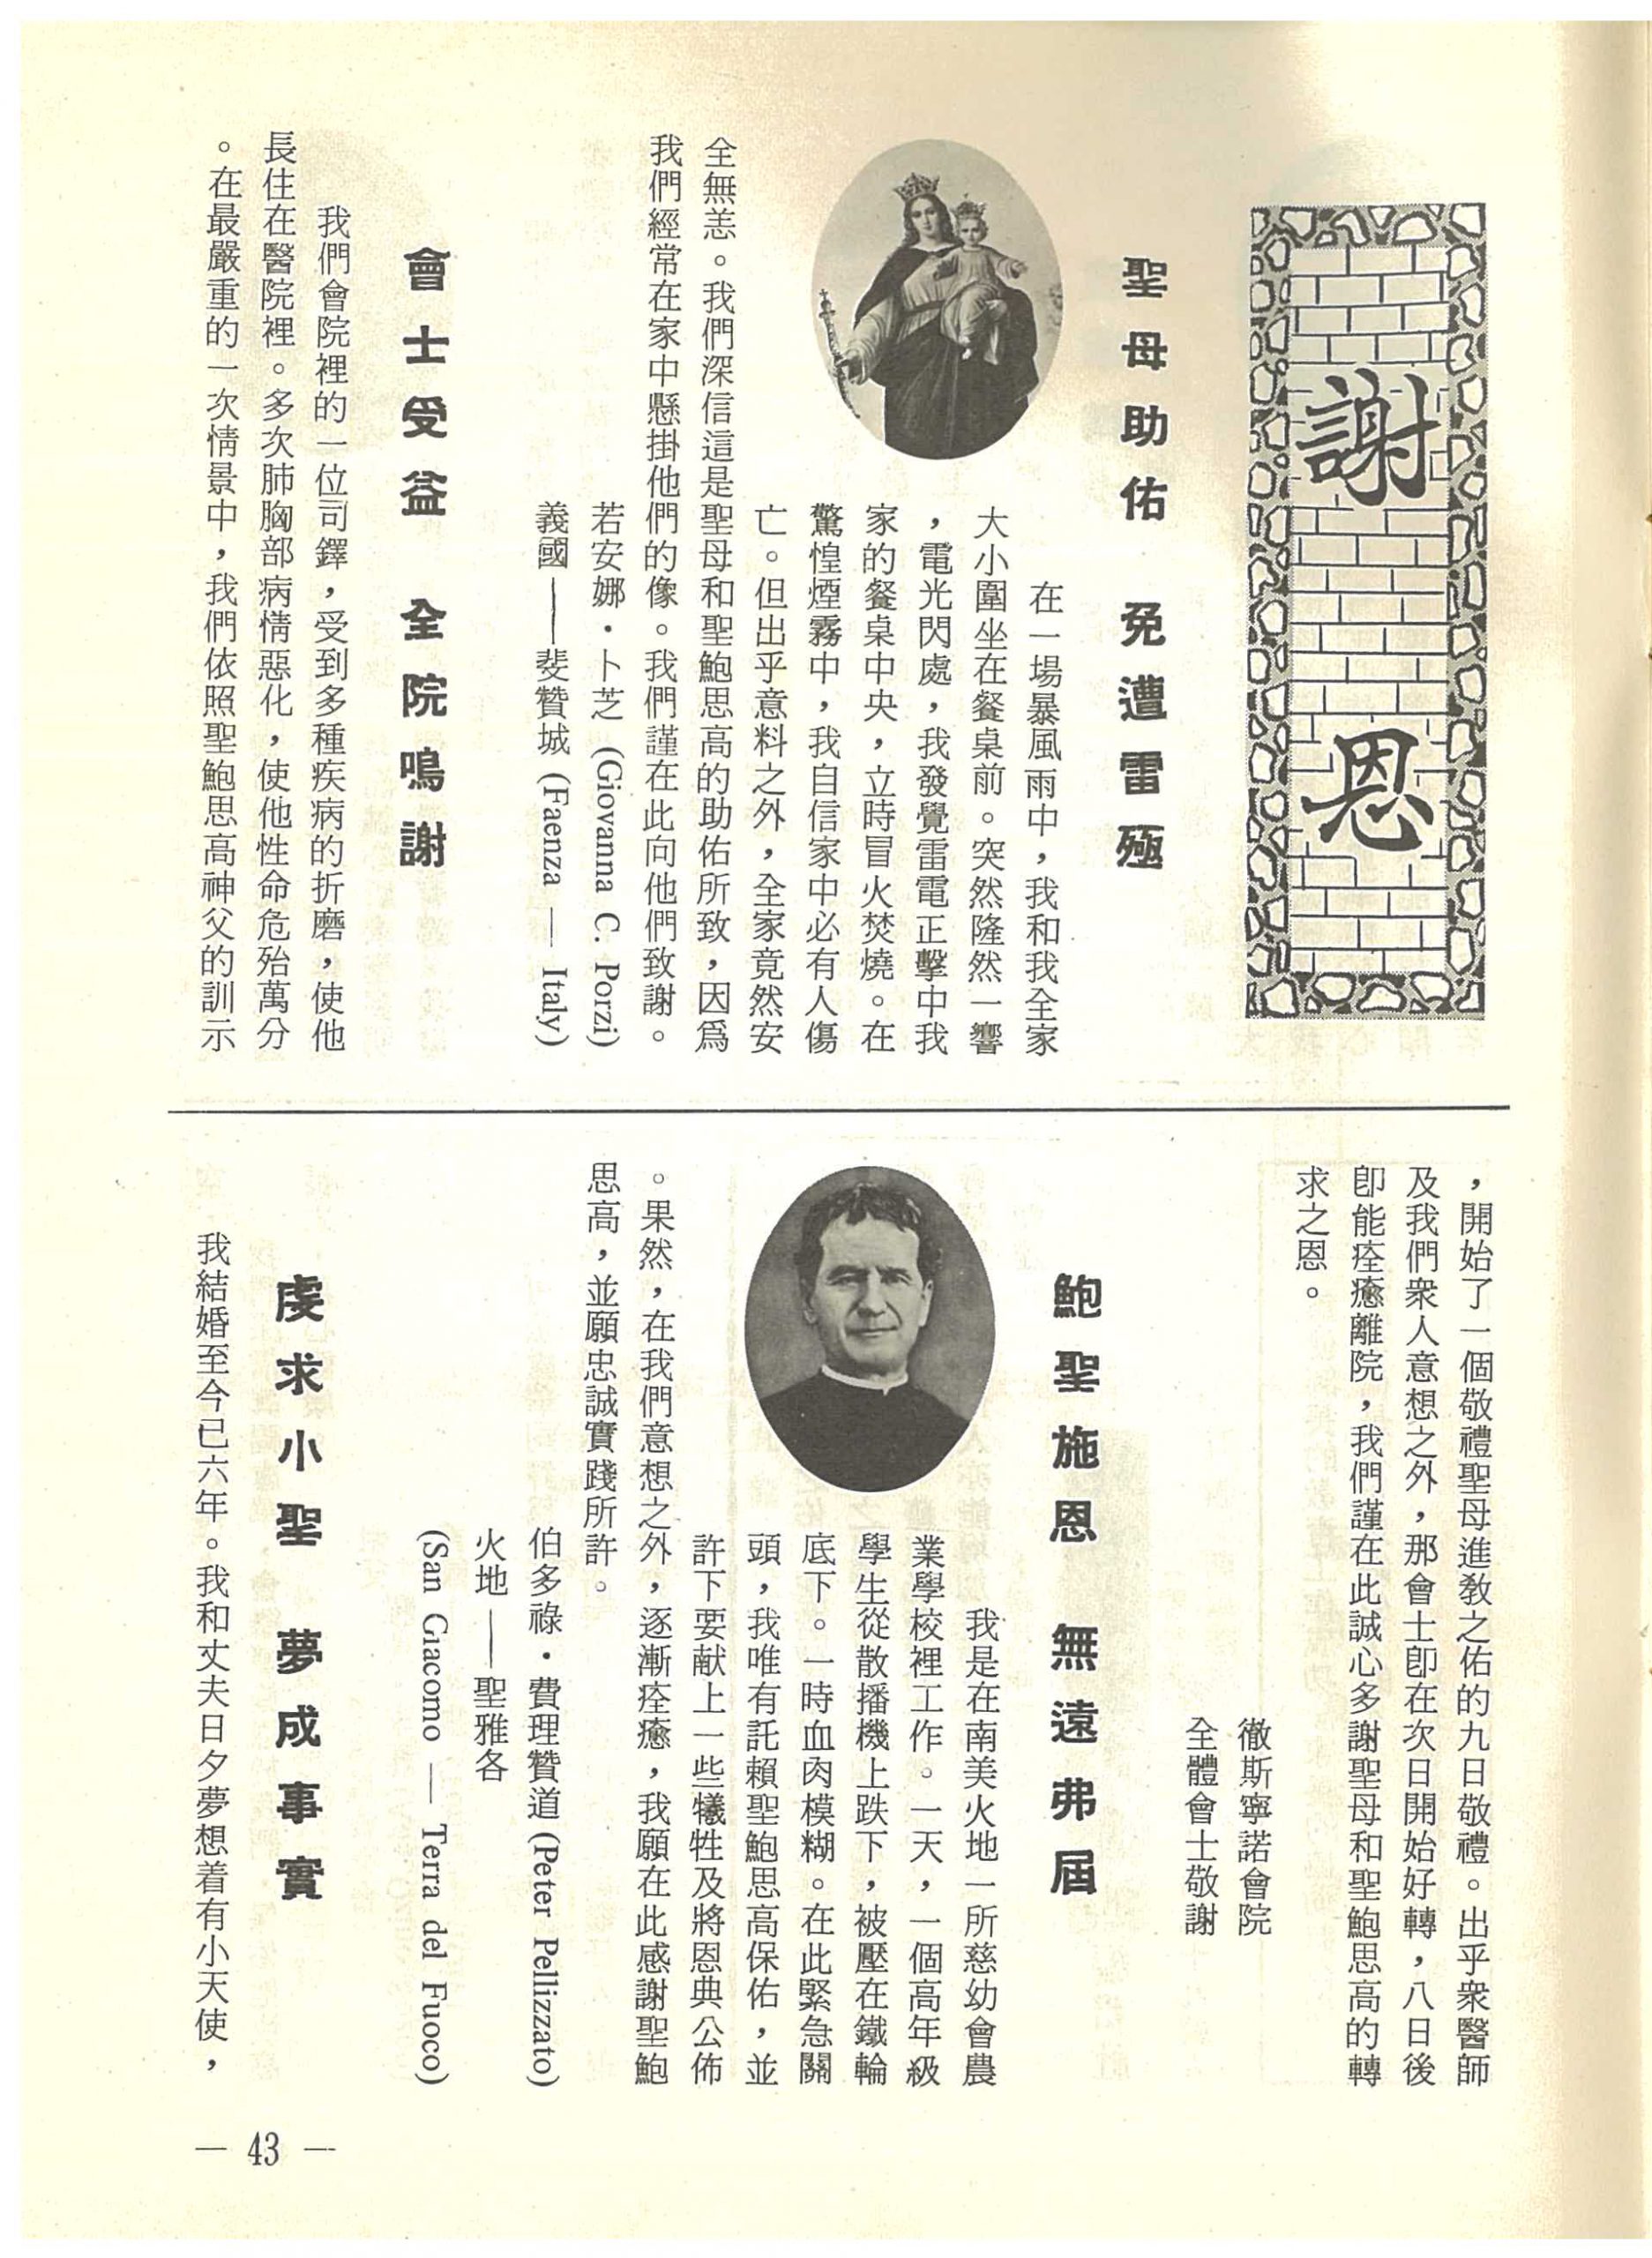 謝恩
聖母助佑　免遭雷殛
在一場暴風雨中，我和我全家
大小圍坐在餐桌前。突然隆然一響
，電光閃處，我發覺雷電正擊中我
家的餐桌中央，立時冒火焚燒。在
驚惶煙霧中，我自信家中必有人傷
亡。但出乎意料之外，全家竟然安
全無恙。我們深信這是聖母和聖鮑思高的助佑所致，因爲
我們經常在家中懸掛他們的像。我們謹在此向他們致謝。
若安娜・卜芝 (Giovanna C. Porzi)
義國——斐贊城 (Faenza — Italy)
會士受益　全院鳴謝
我們會院裡的一位司鐸，受到多種疾病的折磨，使他
長住在醫院裡。多次肺胸部病情惡化，使他性命危殆萬分
。在最嚴重的一次情景中，我們依照聖鮑思高神父的訓示
，開始了一個敬禮聖母進教之佑的九日敬禮。出乎衆醫師
及我們衆人意想之外，那會士卽在次日開始好轉，八日後
卽能痊癒離院，我們謹在此誠心多謝聖母和聖鮑思高的轉
求之恩。
徹斯寧諾會院
全體會士敬謝
鮑聖施恩　無遠弗屆
我是在南美火地一所慈幼會農
業學校裡工作。一天，一個高年級
學生從散播機上跌下，被壓在鐵輪
底下。一時血肉模糊。在此緊急關
頭，我唯有託賴聖鮑思高保佑，並
許下要献上一些犧牲及將恩典公佈
。果然，在我們意想之外，逐漸痊癒，我願在此感謝聖鮑
思高，並願忠誠實踐所許。
伯多祿・費理贊道 (Peter Pellizzato)
火地——聖雅各
(San Giacomo — Terra del Fuoco)
虔求小聖　夢成事實
我結婚至今已六年。我和丈夫日夕夢想着有小天使，
— 43 —